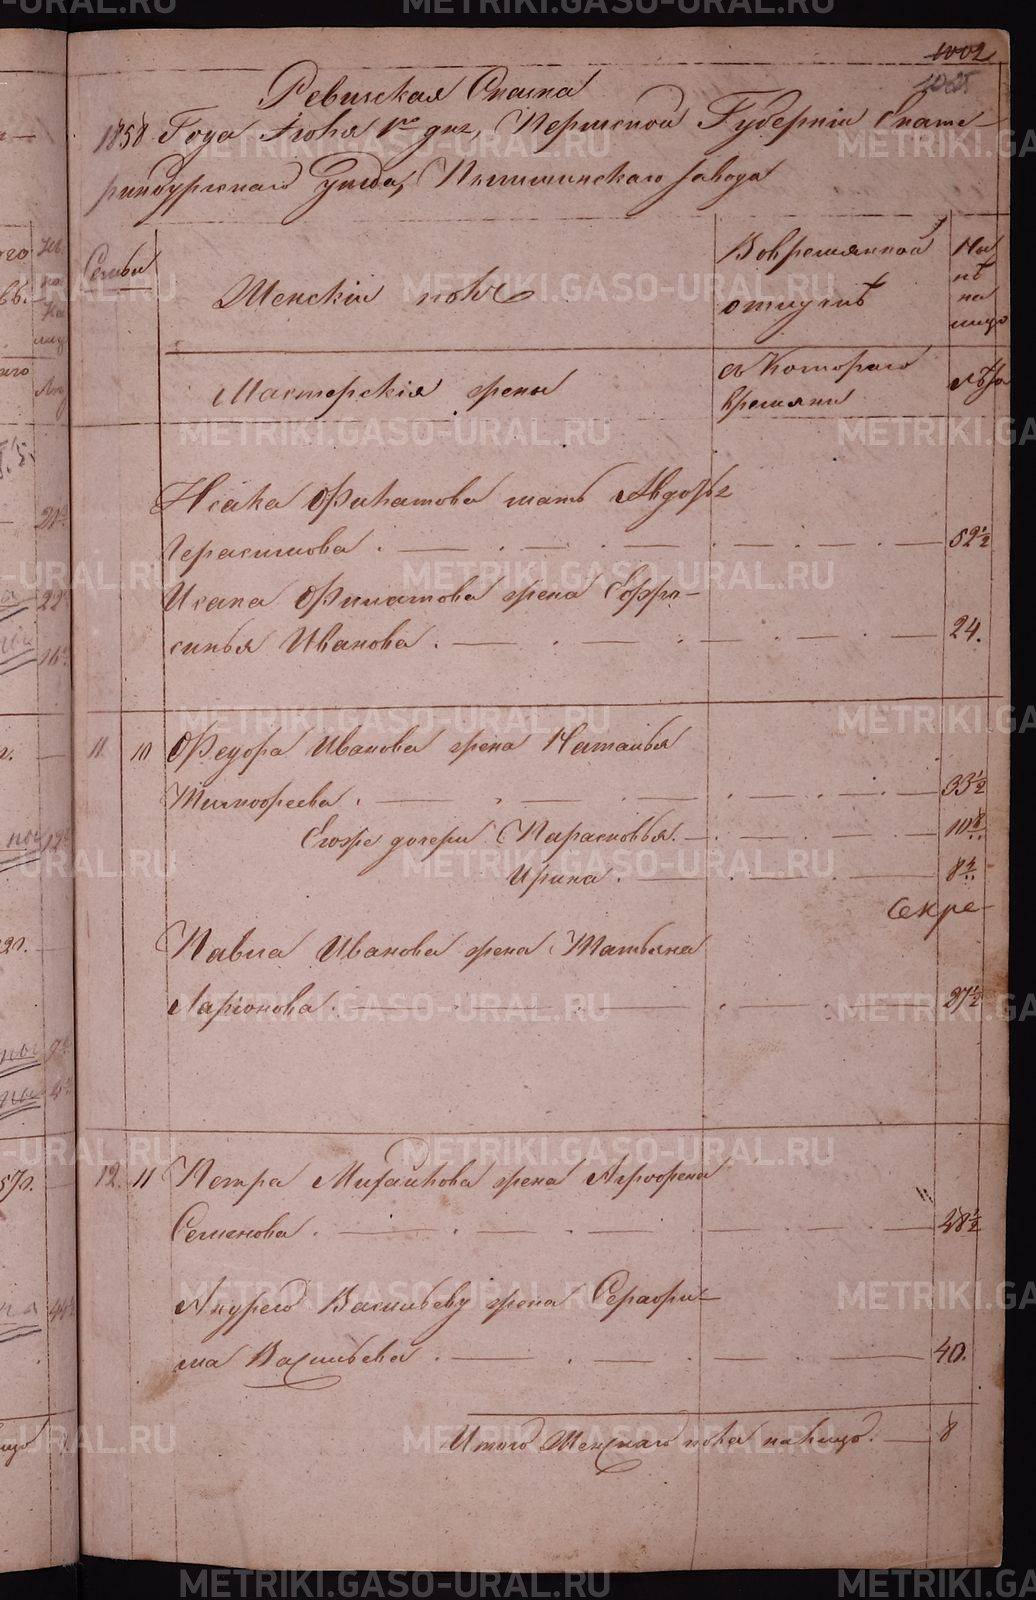 1002
1025
Ревизская Сказка
1858 Года Июня 1го дня, Пермской Губерніи Екате-
ринбургскаго Уезда, Пышминскаго завода
Семьи
Женскій полъ
Вовременной
отлучкѣ
На
лѣ
на
лицо
Мастерскія жены
съ Котораго
времяни
лѣта
Исака Филатова мать Авдотья
Герасимова . — . — . — . — 52½
Исака Филатова жена Ефро-
синья Иванова . — . — . — 24.
11 10 Федора Иванова жена Наталья
Тимофеева . — . — . — . — 33½
Егоже дочери Парасковья. — . — 10
Ирина . — . — . — 8
Секре-
Павла Иванова жена Татьяна
Ларіонова . — . — . — . — 27½
12. 11 Петра Михайлова жена Агрофена
Семенова . — . — . — . — 28½
Андрея Васильева жена Серафи-
ма Васильева . — . — . — 40.
Итого Женскаго пола налицо. — 8
METRIKI.GASO-URAL.RU